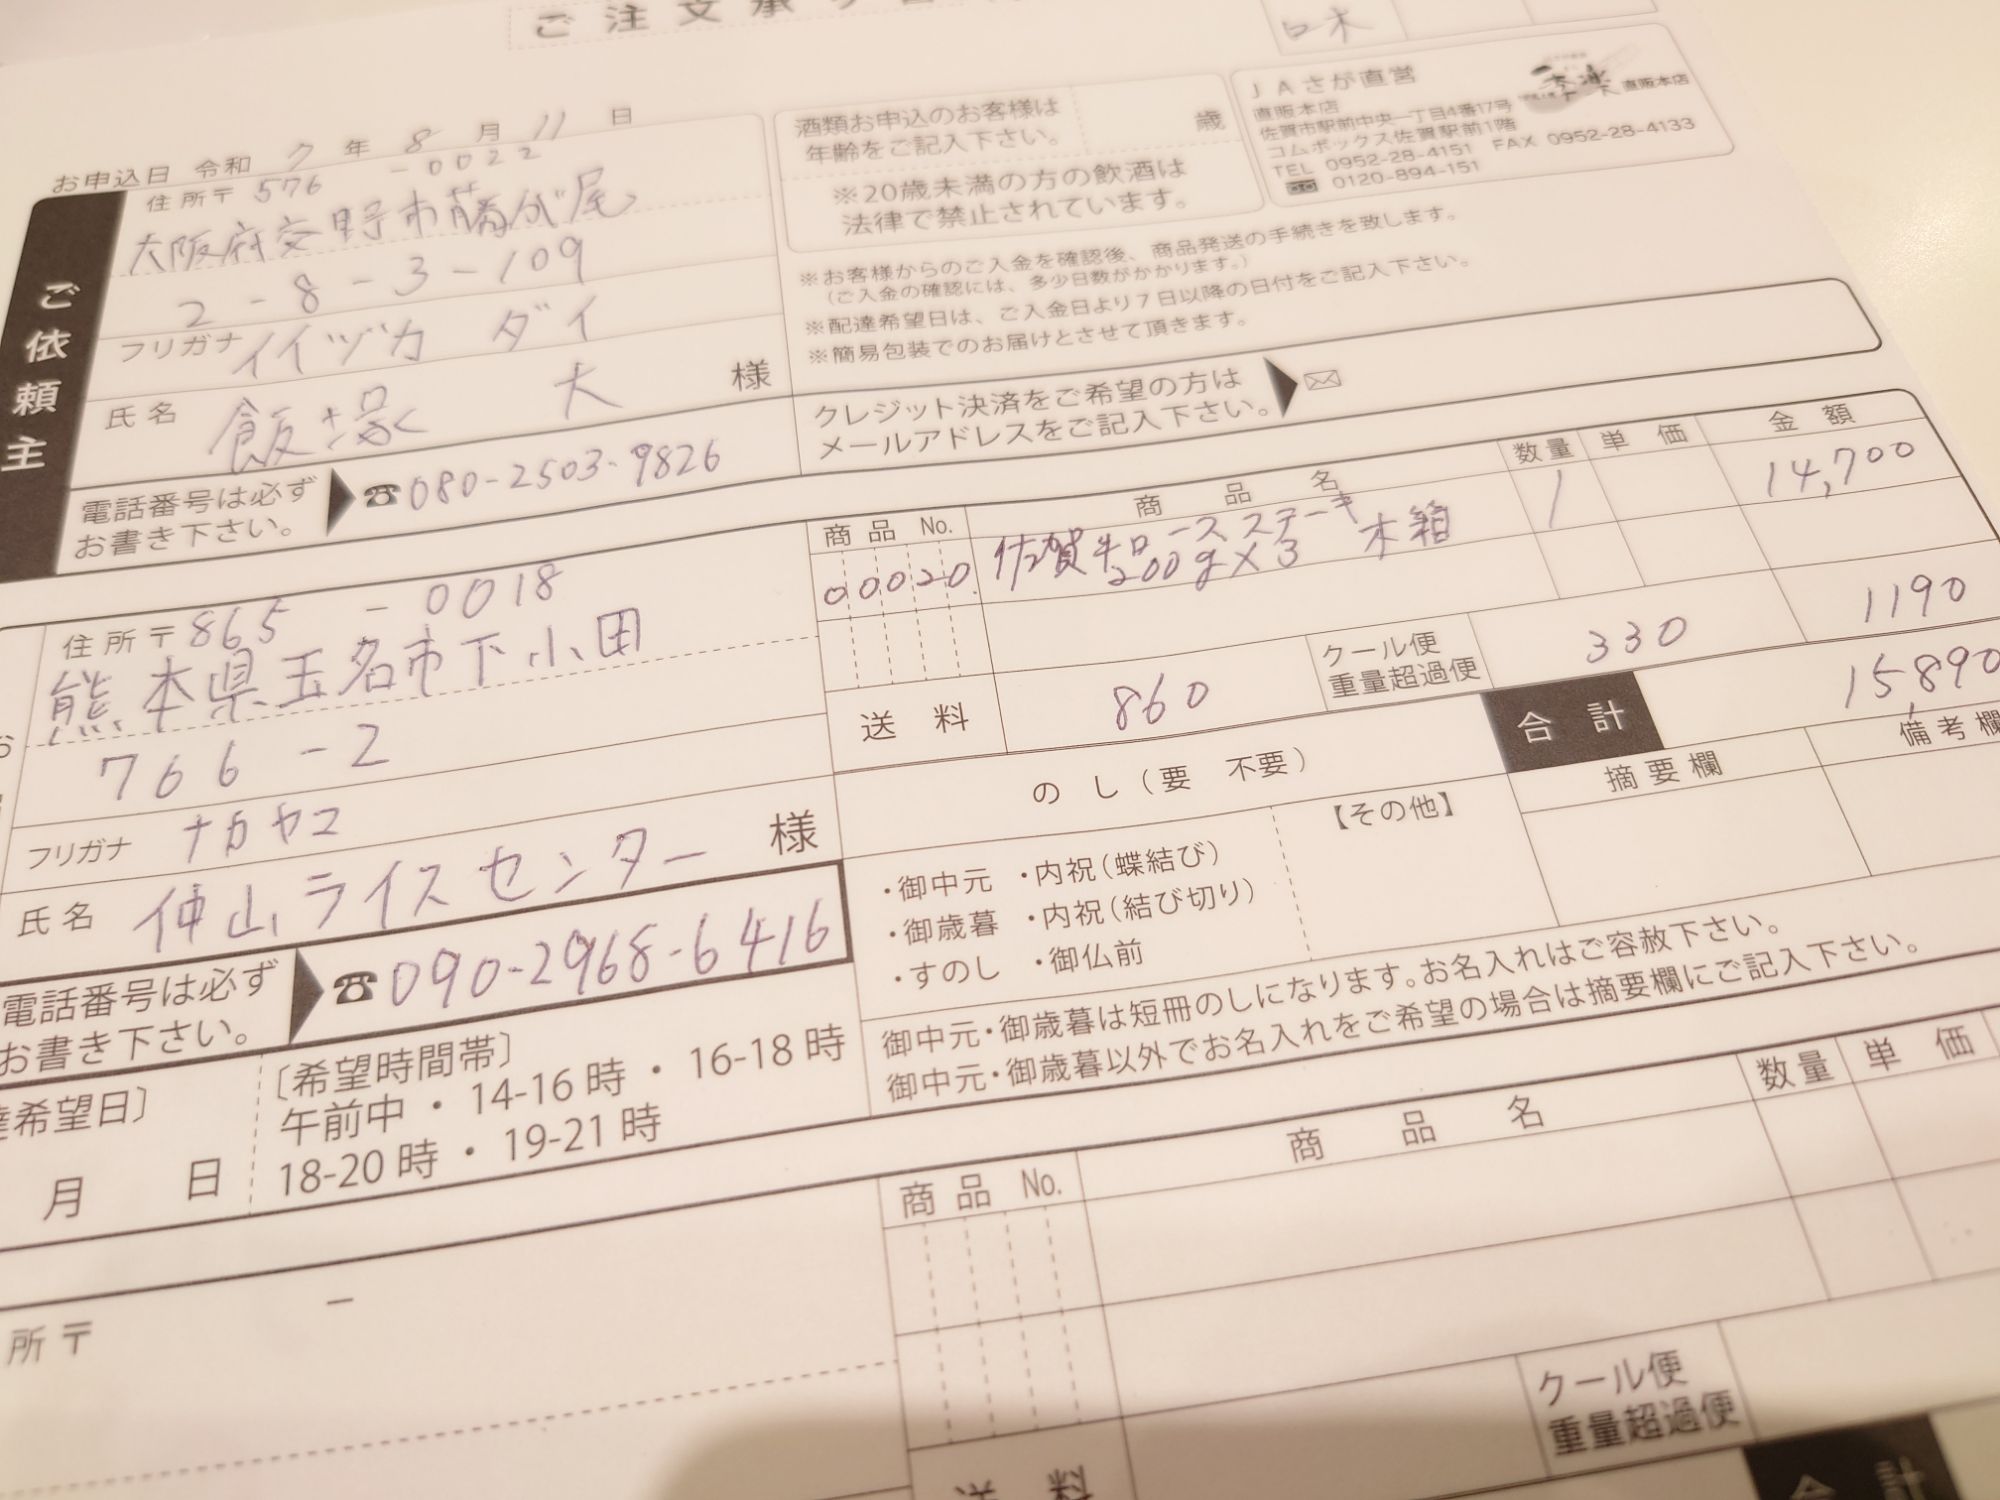 ご注文承り書
口木
お申込日 令和 7 年 8 月 11 日
ご依頼主
住所〒 576 - 0022
大阪府交野市藤が尾
2-8-3-109
フリガナ イイヅカ ダイ
氏名 飯塚 大 様
電話番号は必ず
お書き下さい。
☎ 080-2503-9826
酒類お申込のお客様は
年齢をご記入下さい。
歳
※20歳未満の方の飲酒は
法律で禁止されています。
JAさが直営
季楽 直販本店
直販本店
佐賀市駅前中央一丁目4番17号
コムボックス佐賀駅前1階
TEL 0952-28-4151 FAX 0952-28-4133
0120-894-151
※お客様からのご入金を確認後、商品発送の手続きを致します。
(ご入金の確認には、多少日数がかかります。)
※配達希望日は、ご入金日より7日以降の日付をご記入下さい。
※簡易包装でのお届けとさせて頂きます。
クレジット決済をご希望の方は
メールアドレスをご記入下さい。
住所〒 865 - 0018
熊本県玉名市下小田
766-2
フリガナ ナカヤマ
氏名 仲山ライスセンター 様
電話番号は必ず
お書き下さい。
☎ 090-2968-6416
希望日〕
月 日
〔希望時間帯〕
午前中 ・ 14-16時 ・ 16-18時
18-20時 ・ 19-21時
商品 No. 商品名 数量 単価 金額
00020 佐賀牛ロースステーキ 木箱 1 14,700
200g×3
1190
送料 860 クール便
重量超過便 330
合計 15,890
のし(要 不要)
摘要欄 備考欄
・御中元 ・内祝(蝶結び)
・御歳暮 ・内祝(結び切り)
・すのし ・御仏前
【その他】
御中元・御歳暮は短冊のしになります。お名入れはご容赦下さい。
御中元・御歳暮以外でお名入れをご希望の場合は摘要欄にご記入下さい。
商品 No. 商品名 数量 単価
所〒 -
クール便
重量超過便
送料
合計